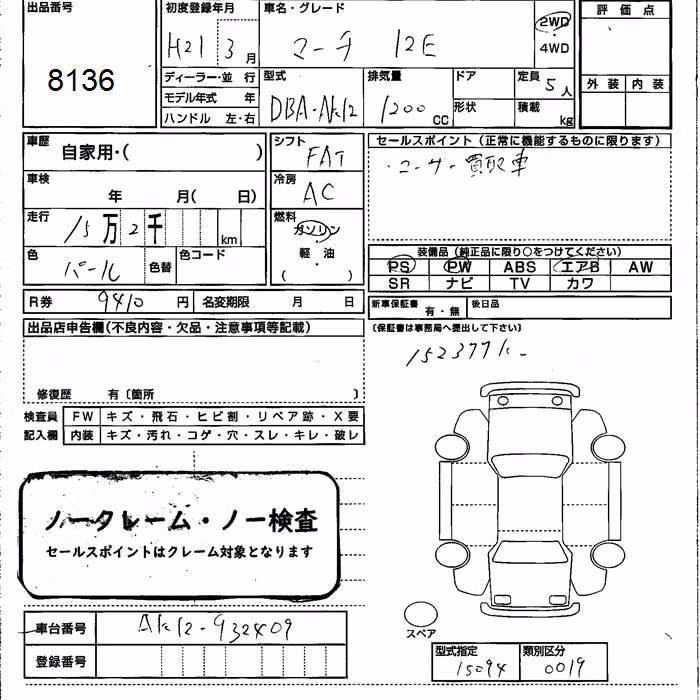 出品番号
8136
初度登録年月
H21 3月
車名・グレード
マーチ 12E
2WD
・
4WD
評価点
外装 内装
ディーラー・並行
モデル年式 年
ハンドル 左・右
型式
DBA-AK12
排気量
1200 CC
ドア
形状
定員
5人
積載
kg
車歴
自家用・( )
シフト
FAT
車検
年 月( 日)
冷房
AC
走行
15万2千 km
燃料
ガソリン
軽・油
( )
色
パール
色替
色コード
セールスポイント(正常に機能するものに限ります)
・ユーザー買取車
装備品(純正品に限り○をつけてください)
PS PW ABS エアB AW
SR ナビ TV カワ
R券 9410円 名変期限 月 日
新車保証書 有・無 後日品
(保証書は事務局へ提出して下さい)
出品店申告欄(不良内容・欠品・注意事項等記載)
152377k
修復歴 有〔箇所 〕
検査員
記入欄
FW キズ・飛石・ヒビ割・リペア跡・X要
内装 キズ・汚れ・コゲ・穴・スレ・キレ・破レ
ノークレーム・ノー検査
セールスポイントはクレーム対象となります
車台番号 AK12-932409
登録番号
スペア
型式指定
15094
類別区分
0019